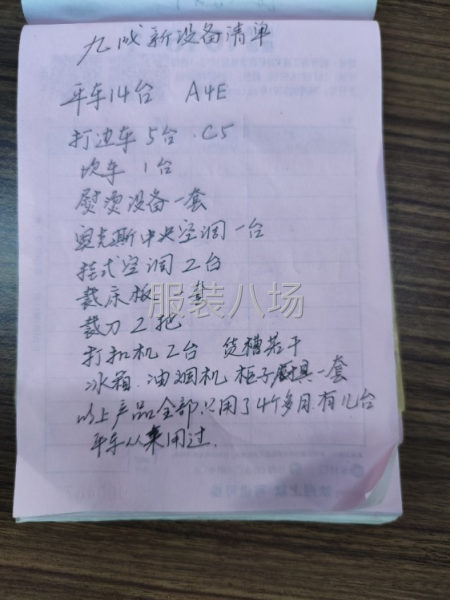 九成新设备清单
平车14台 A4E
打边车5台 C5
坎车1台
熨烫设备一套
奥克斯中央空调一台
挂式空调2台
裁床板 一套
服装八场
裁刀2把
打扣机2台 货槽若干
冰箱 油烟机 柜子厨具一套
以上产品全部只用了4个多月.有几台
平车从来用过.